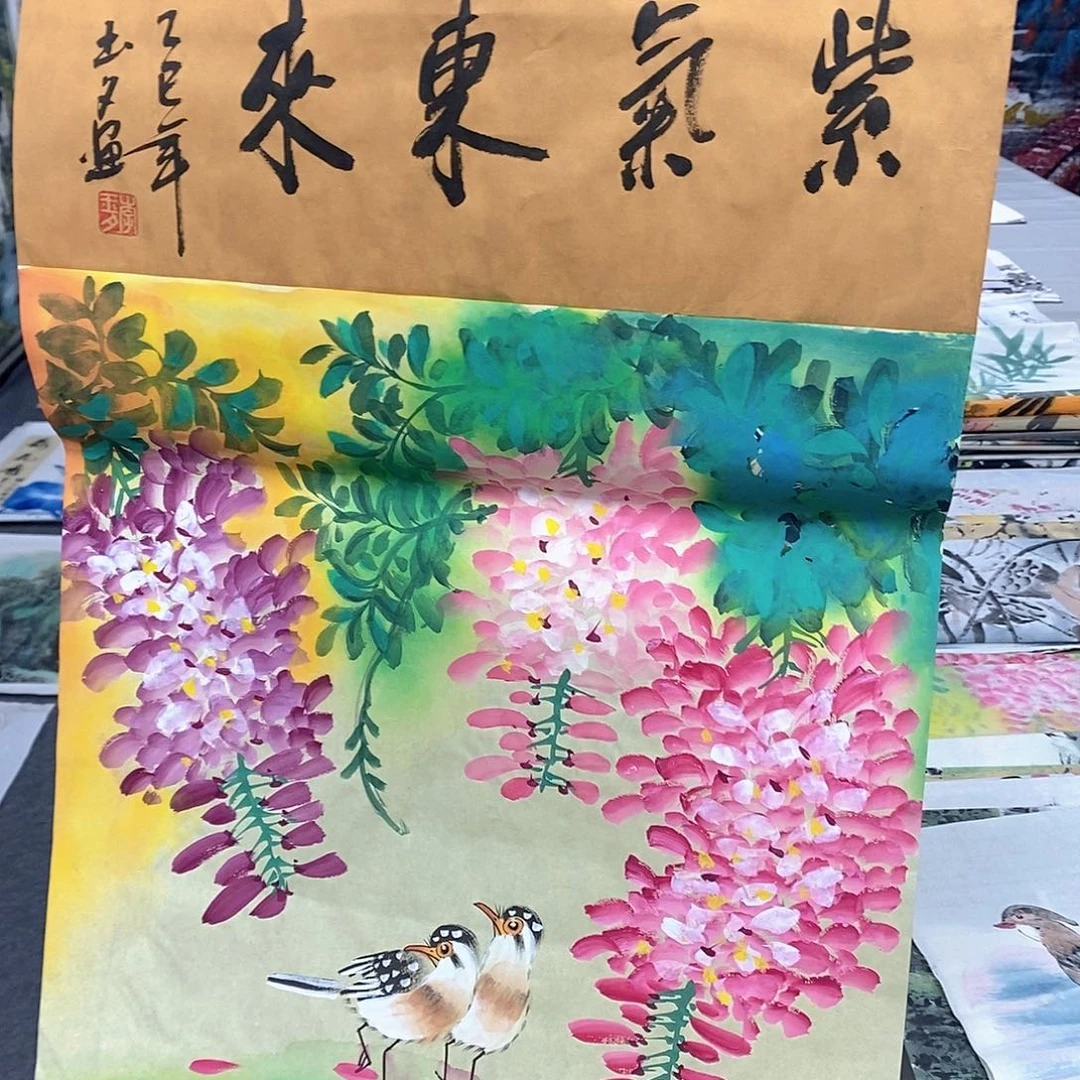 紫氣東來
乙巳年
玉夕画